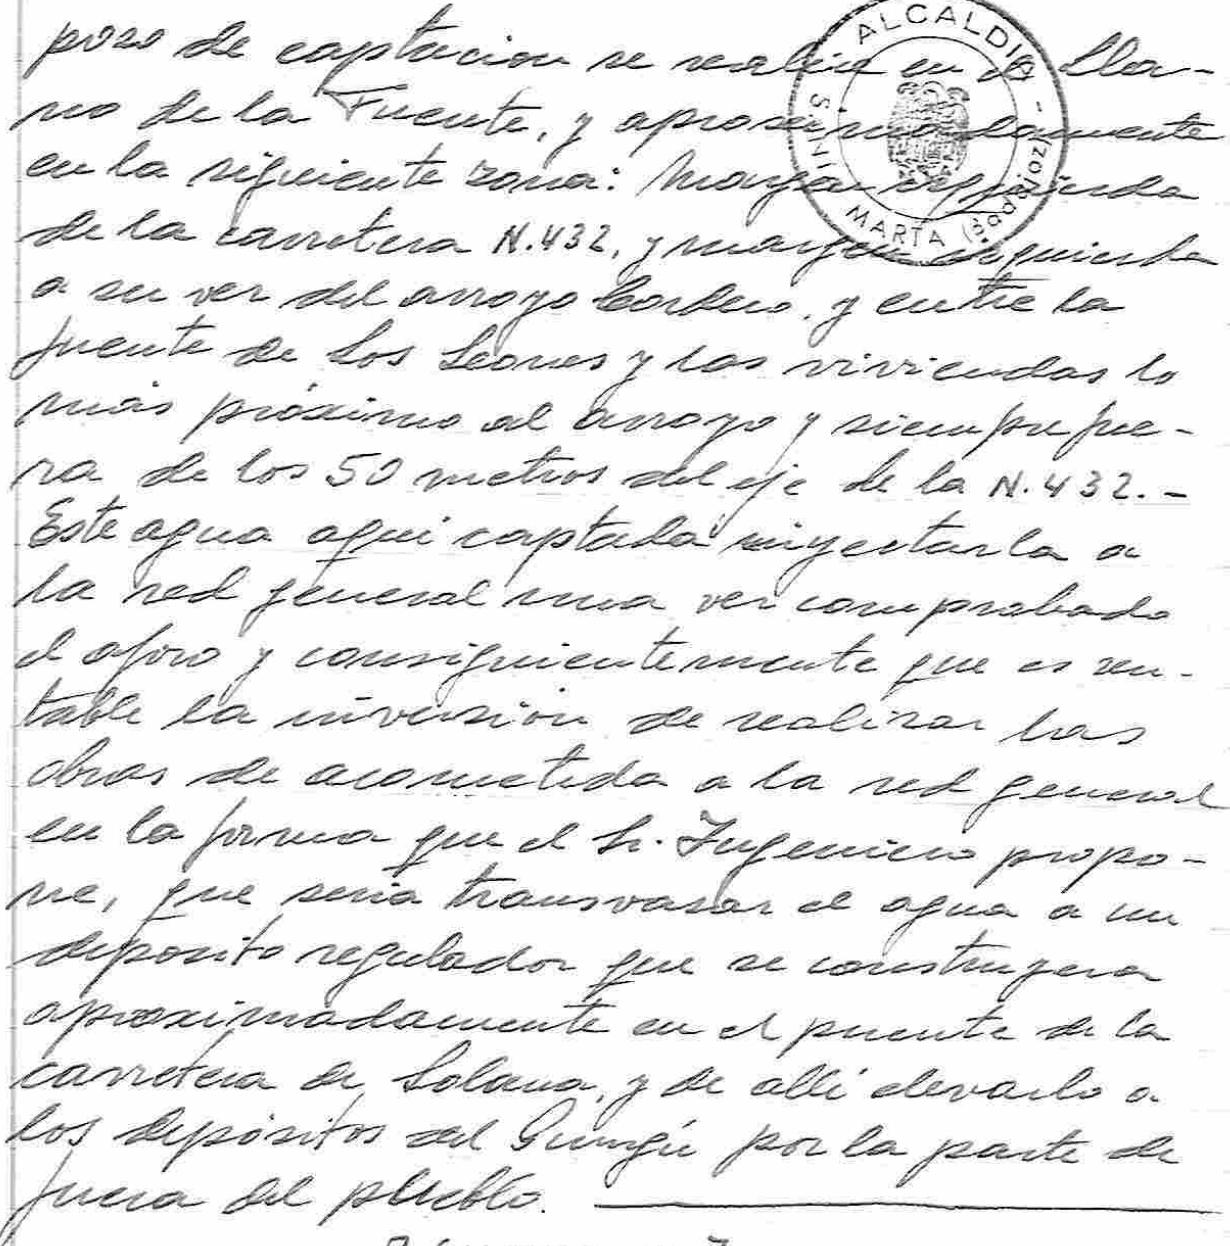 pozo de captacion se realice en el Lla-
no de la Fuente, y aproximadamente
en la siguiente zona: Margen izquierda
de la carretera N.432, y margen izquierda
a su vez del arroyo Cordero, y entre la
fuente de Los Leones y las viviendas lo
más próximo al arroyo y siempre fue-
ra de los 50 metros del eje de la N.432.-
Este agua aqui captada inyectarla a
la red general una vez comprobado
el aforo y consiguientemente que es ren-
table la inversión de realizar las
obras de acometida a la red general
en la forma que el Sr. Ingeniero propo-
ne, que seria transvasar el agua a un
deposito regulador que se construyera
aproximadamente en el puente de la
carretera de Solana, y de allí elevarlo a
los depósitos del Gurugú por la parte de
fuera del pueblo.
ALCALDIA - 
MARTA (Badajoz)